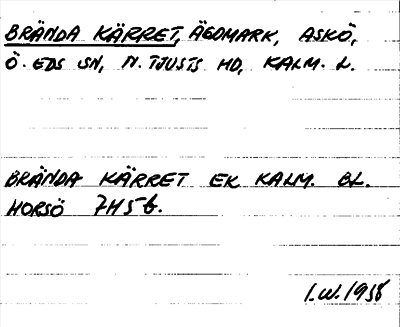 BRÄNDA KÄRRET, ÄGOMARK, ASKÖ,
Ö. EDS SN, N. TJUSTS HD, KALM. L.
BRÄNDA KÄRRET EK KALM. BL.
HORSÖ 7H5b.
I.W. 1958